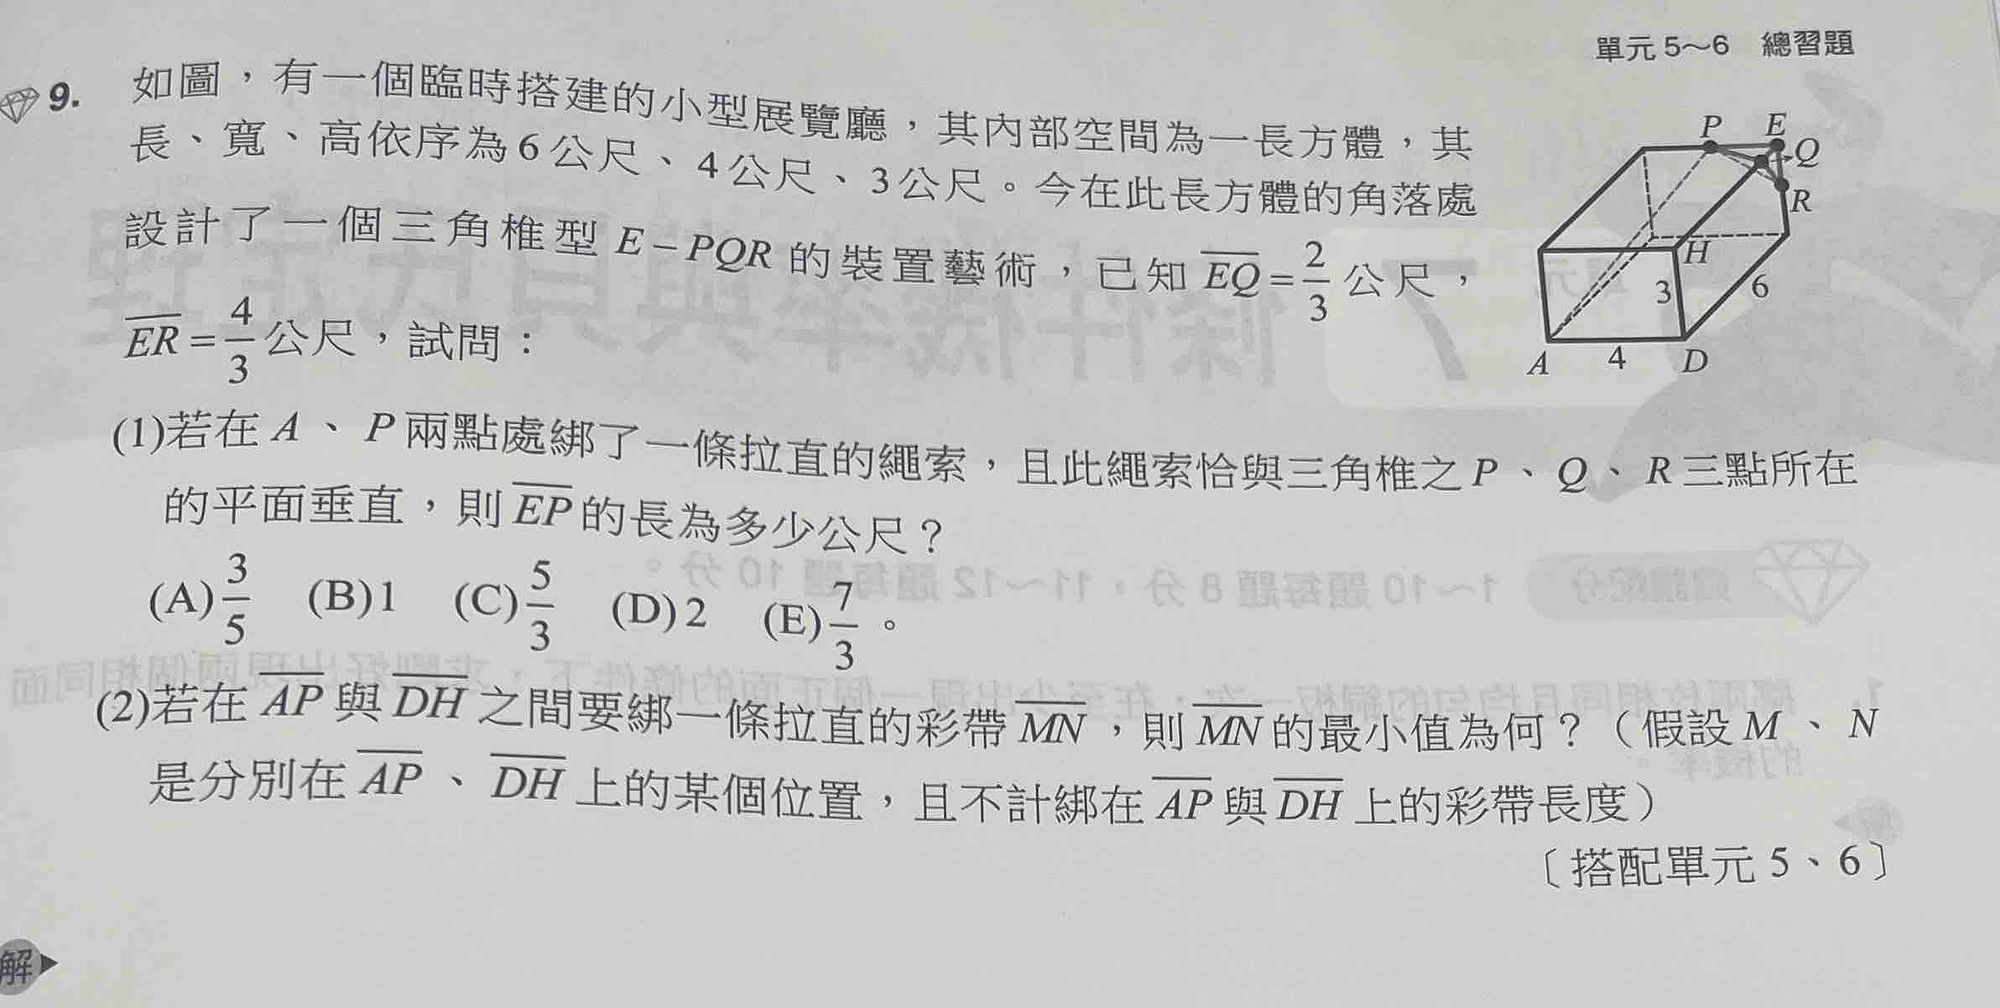 單元 5～6　總習題
9. 如圖，有一個臨時搭建的小型展覽廳，其內部空間為一長方體，其
長、寬、高依序為 6 公尺、4 公尺、3 公尺。今在此長方體的角落處
設計了一個三角椎型 E－PQR 的裝置藝術，已知 \overline{EQ}=\frac{2}{3} 公尺，
\overline{ER}=\frac{4}{3} 公尺，試問：
P E
Q
R
H
3 6
A 4 D
(1)若在 A、P 兩點處綁了一條拉直的繩索，且此繩索恰與三角椎之 P、Q、R 三點所在
的平面垂直，則 \overline{EP} 的長為多少公尺？
(A)\frac{3}{5} (B)1 (C)\frac{5}{3} (D)2 (E)\frac{7}{3}。
(2)若在 \overline{AP} 與 \overline{DH} 之間要綁一條拉直的彩帶 \overline{MN}，則 \overline{MN} 的最小值為何？（假設 M、N
是分別在 \overline{AP}、\overline{DH} 上的某個位置，且不計綁在 \overline{AP} 與 \overline{DH} 上的彩帶長度）
〔搭配單元 5、6〕
解